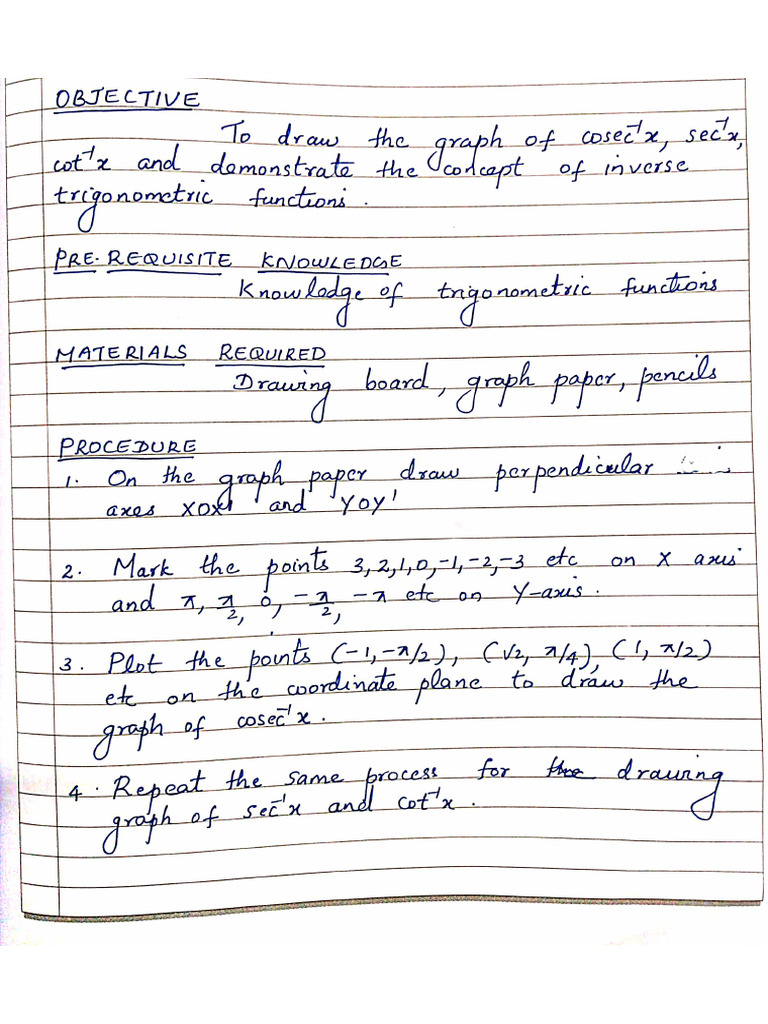 OBJECTIVE
To draw the graph of cosec⁻¹x, sec⁻¹x,
cot⁻¹x and demonstrate the concept of inverse
trigonometric functions.
PRE-REQUISITE KNOWLEDGE
Knowledge of trigonometric functions
MATERIALS REQUIRED
Drawing board, graph paper, pencils
PROCEDURE
1. On the graph paper draw perpendicular
axes XOX' and YOY'
2. Mark the points 3,2,1,0,-1,-2,-3 etc on X axis
and π, π/2, 0, -π/2, -π etc on Y-axis.
3. Plot the points (-1,-π/2), (√2, π/4), (1, π/2)
etc on the coordinate plane to draw the
graph of cosec⁻¹x.
4. Repeat the same process for the drawing
graph of sec⁻¹x and cot⁻¹x.